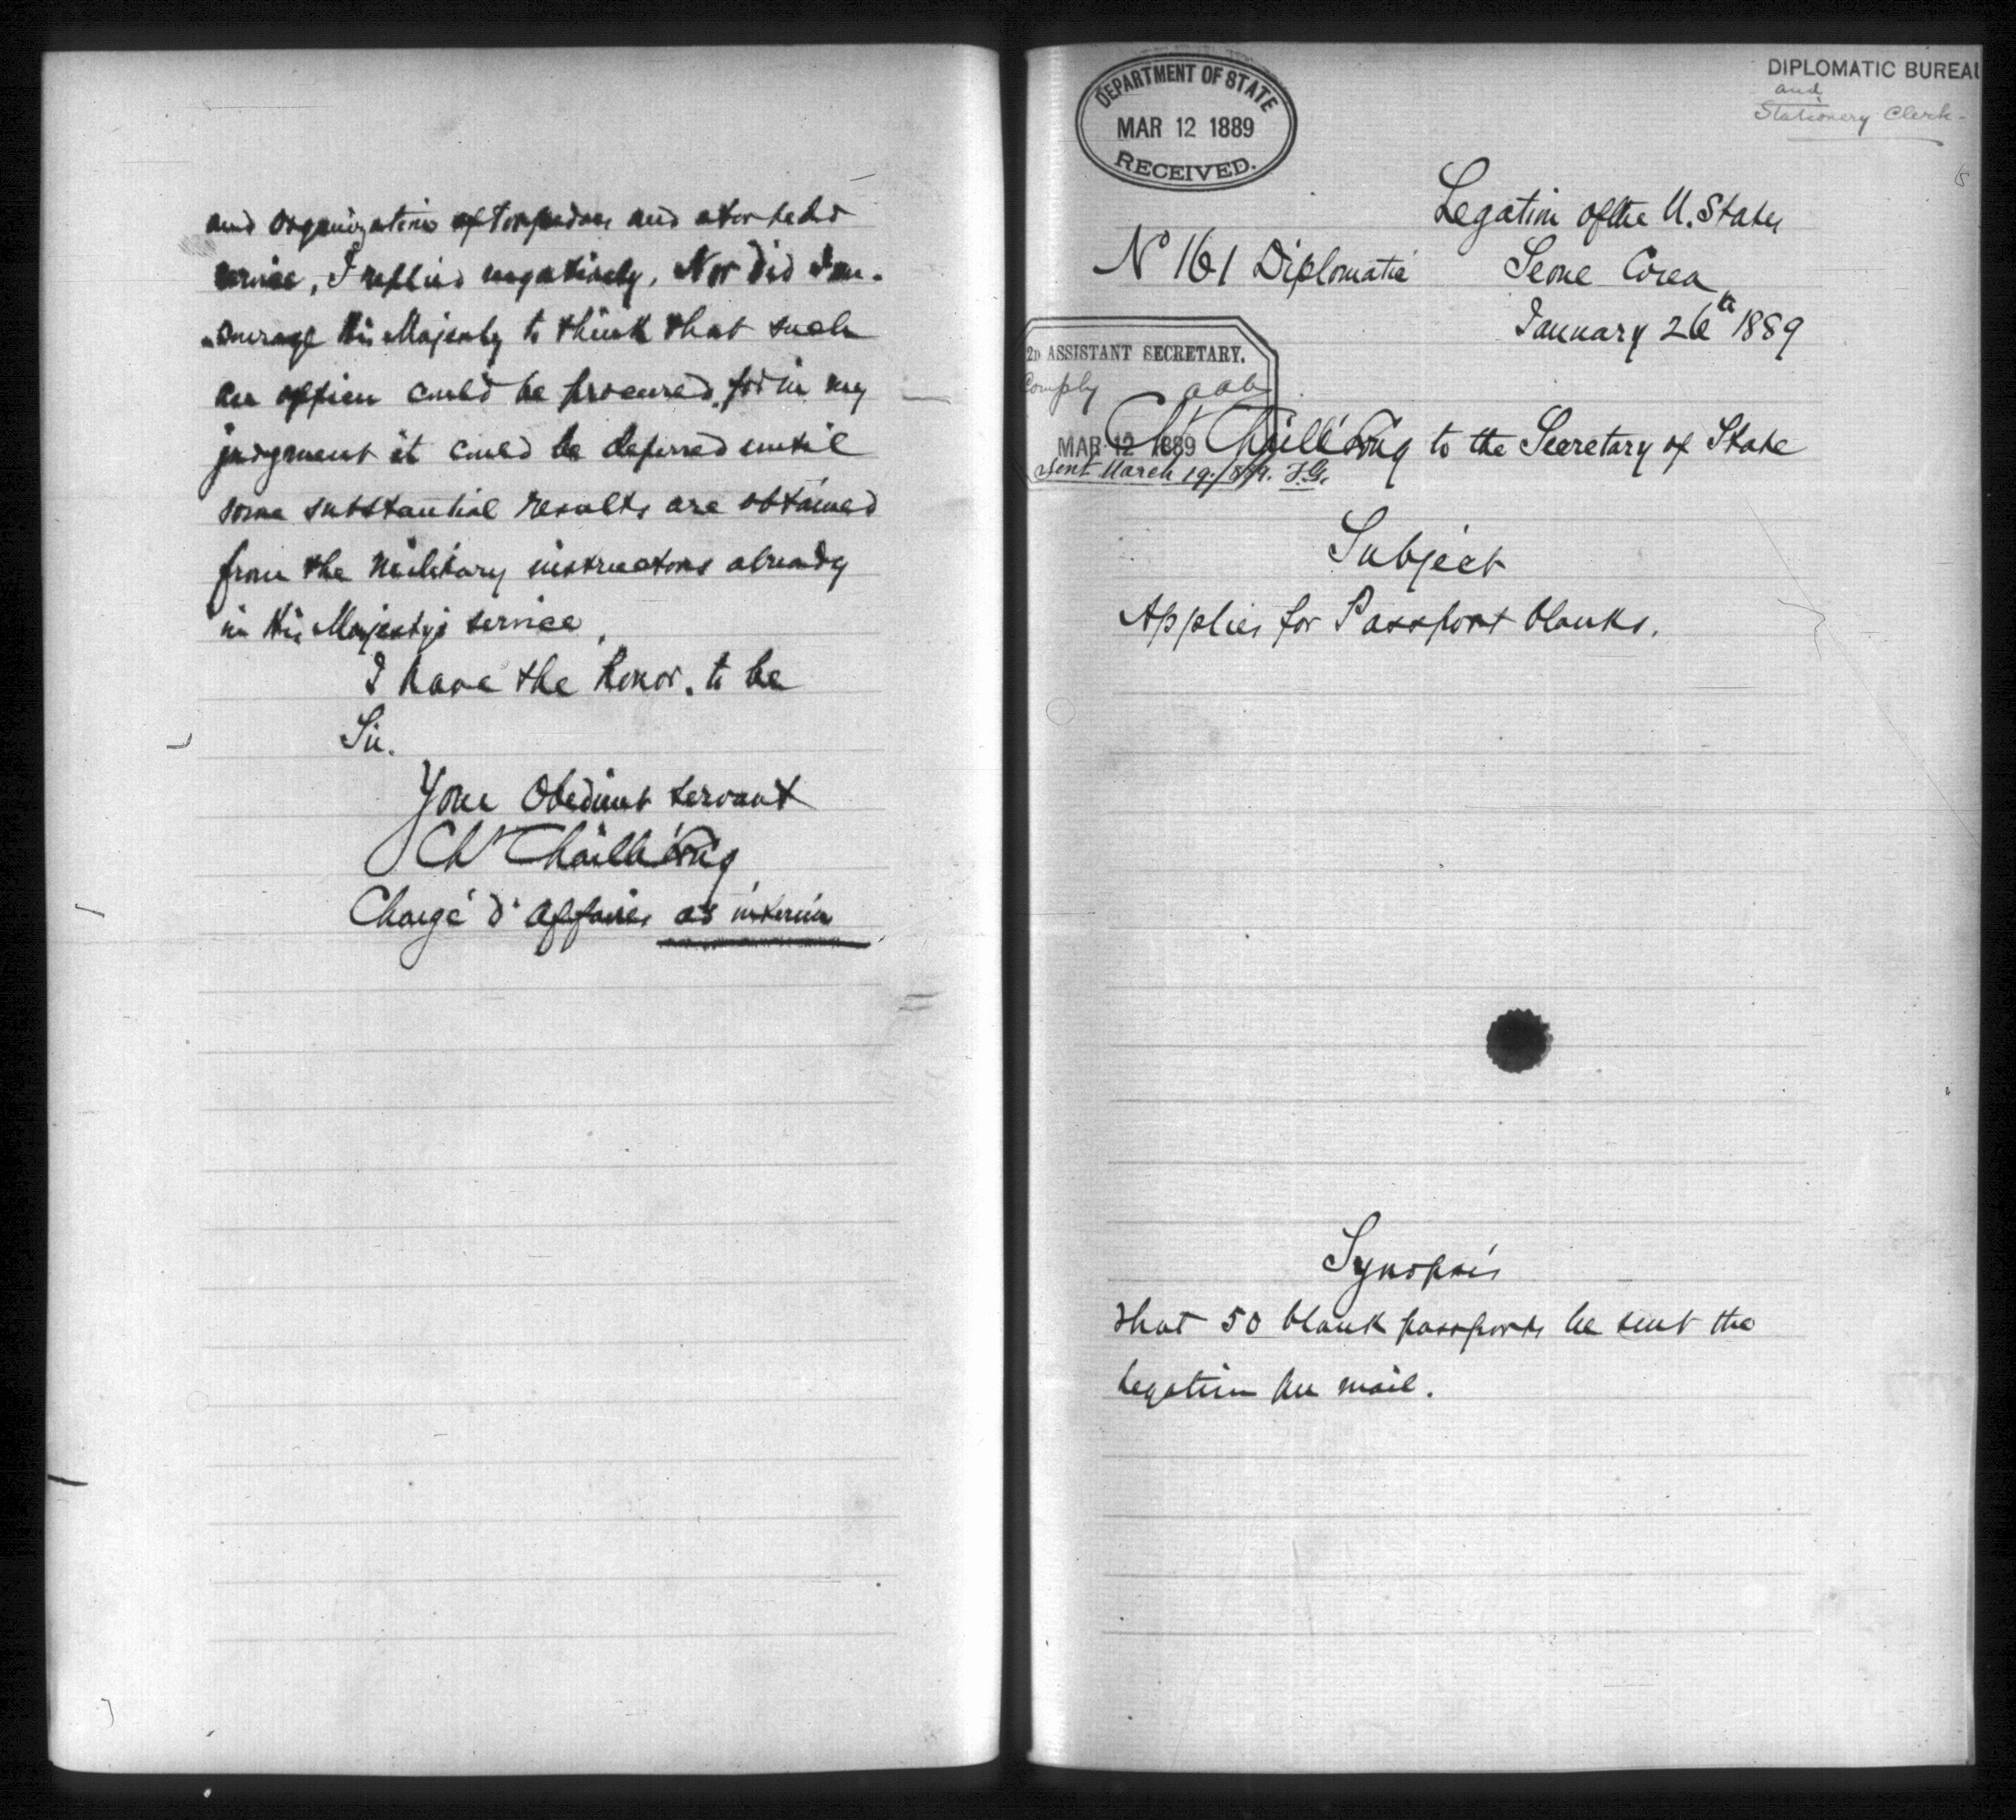 and organization of torpedoes and
service, I replied negatively. Nor did I en-
-courage His Majesty to think that such
an officer could be procured, for in my
judgment it could be deferred until
some substantial results are obtained
from the military instructors already
in His Majesty's service.
I have the honor, to be
Sir.
Your Obedient servant
Ch Chaillé Long
Chargé d'affaires ad interim
DEPARTMENT OF STATE
MAR 12 1889
RECEIVED.
DIPLOMATIC BUREAU
and
Stationery Clerk-
Legation of the U. States
No 161 Diplomatic Seoul Corea
January 26th 1889
2D ASSISTANT SECRETARY.
Comply aaa
MAR 12 1889
Sent March 19./89. F.G.
Ch Chaillé Long to the Secretary of State
Subject
Applies for Passport blanks.
Synopsis
that 50 blank passports be sent the
legation per mail.